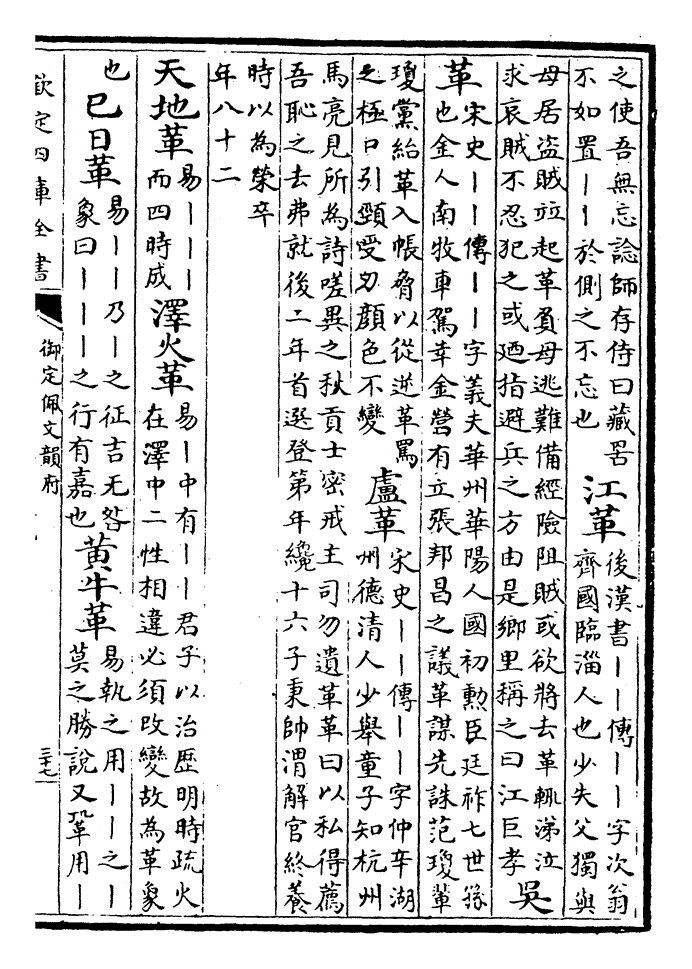 之使吾無忘諗師存侍曰藏罟
不如置丨丨於側之不忘也
江革
後漢書丨丨傳丨丨字次翁
齊國臨淄人也少失父獨與
母居盜賊竝起革負母逃難備經險阻賊或欲將去革輒涕泣
求哀賊不忍犯之或廼指避兵之方由是鄉里稱之曰江巨孝
吳
革
宋史丨丨傳丨丨字義夫華州華陽人國初勲臣廷祚七世孫
也金人南牧車駕幸金營有立張邦昌之議革謀先誅范瓊輩
瓊黨紿革入帳脅以從逆革罵
之極口引頸受刃顏色不變
盧革
宋史丨丨傳丨丨字仲辛湖
州德清人少舉童子知杭州
馬亮見所為詩嗟異之秋貢士密戒主司勿遺革革曰以私得薦
吾恥之去弗就後二年首選登第年纔十六子秉帥渭解官終養
時以為榮卒
年八十二
天地革
易丨丨丨
而四時成
澤火革
易丨中有丨丨君子以治歴明時疏火
在澤中二性相違必須改變故為革象
也
巳日革
易丨丨乃丨之征吉无咎
象曰丨丨丨之行有嘉也
黄牛革
易執之用丨丨之丨
莫之勝說又鞏用丨
欽定四庫全書
御定佩文韻府
三十七